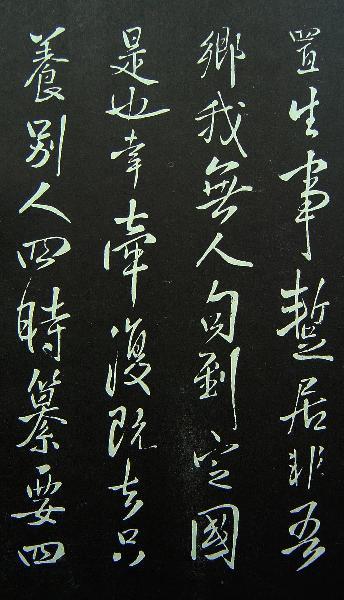 置生事蹔居非吾
鄉我無人勾到定國
是也幸牽復既去只
養別人四時纂要四